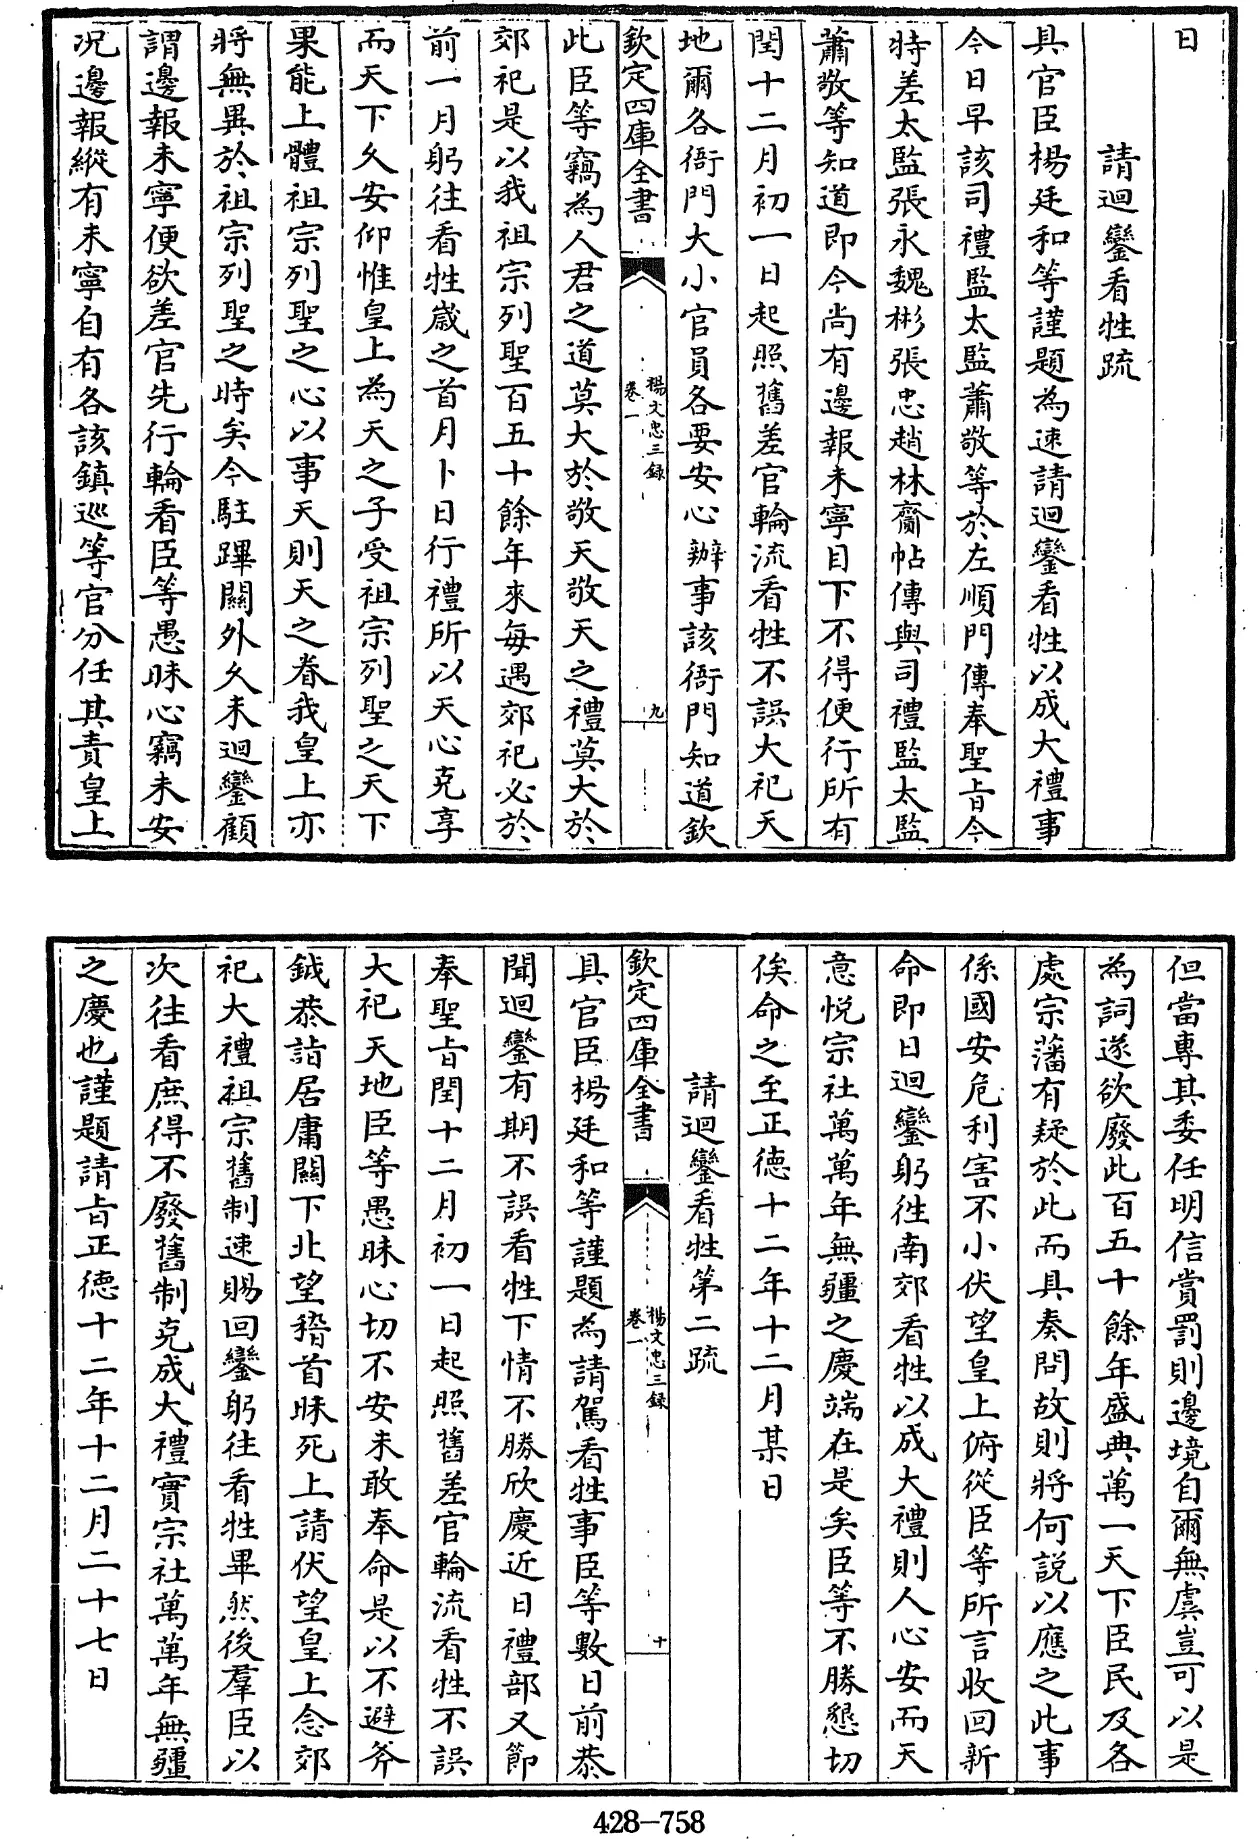 日
請迴鑾看牲疏
具官臣楊廷和等謹題為速請迴鑾看牲以成大禮事
今日早該司禮監太監蕭敬等於左順門傳奉聖旨今
特差太監張永魏彬張忠趙林齎帖傳與司禮監太監
蕭敬等知道即今尚有邊報未寧目下不得便行所有
閏十二月初一日起照舊差官輪流看牲不誤大祀天
地爾各衙門大小官員各要安心辦事該衙門知道欽
欽定四庫全書
楊文忠三録
卷一
九
此臣等竊為人君之道莫大於敬天敬天之禮莫大於
郊祀是以我祖宗列聖百五十餘年來每遇郊祀必於
前一月躬往看牲歲之首月卜日行禮所以天心克享
而天下久安仰惟皇上為天之子受祖宗列聖之天下
果能上體祖宗列聖之心以事天則天之眷我皇上亦
將無異於祖宗列聖之時矣今駐蹕關外久未迴鑾顧
謂邊報未寧便欲差官先行輪看臣等愚昧心竊未安
况邊報縱有未寧自有各該鎮巡等官分任其責皇上
但當專其委任明信賞罰則邊境自爾無虞豈可以是
為詞遂欲廢此百五十餘年盛典萬一天下臣民及各
處宗藩有疑於此而具奏問故則將何說以應之此事
係國安危利害不小伏望皇上俯從臣等所言收回新
命即日迴鑾躬徃南郊看牲以成大禮則人心安而天
意悅宗社萬萬年無疆之慶端在是矣臣等不勝懇切
俟命之至正德十二年十二月某日
請迴鑾看牲第二疏
欽定四庫全書
楊文忠三録
卷一
十
具官臣楊廷和等謹題為請駕看牲事臣等數日前恭
聞迴鑾有期不誤看牲下情不勝欣慶近日禮部又節
奉聖旨閏十二月初一日起照舊差官輪流看牲不誤
大祀天地臣等愚昧心切不安未敢奉命是以不避斧
鉞恭詣居庸關下北望稽首昧死上請伏望皇上念郊
祀大禮祖宗舊制速賜回鑾躬往看牲畢然後羣臣以
次往看庶得不廢舊制克成大禮實宗社萬萬年無疆
之慶也謹題請旨正德十二年十二月二十七日
428-758